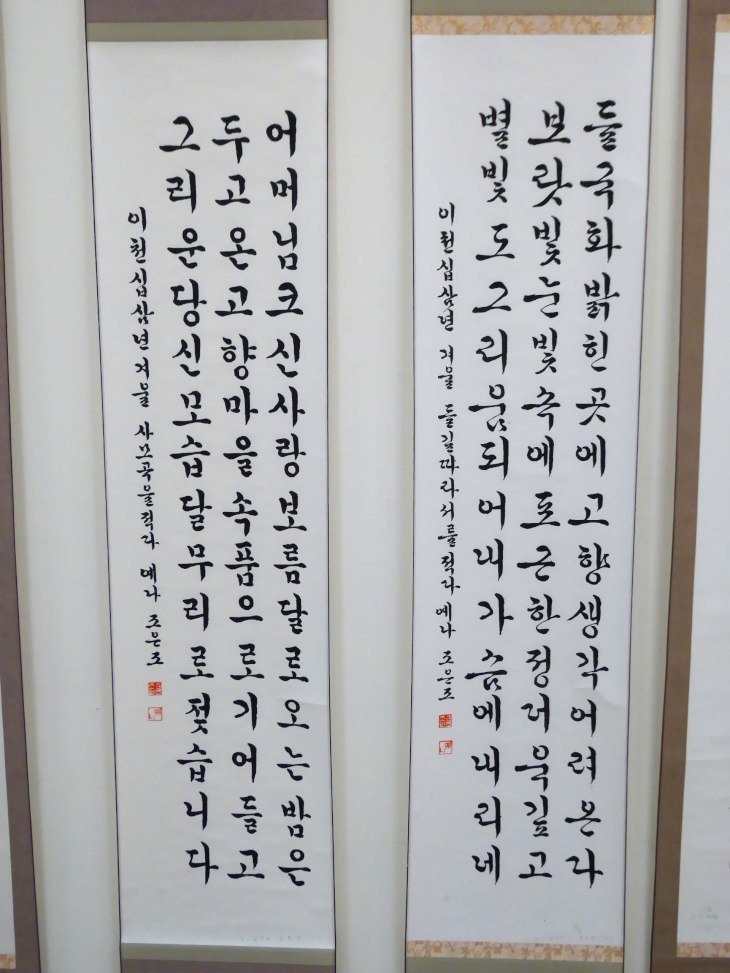 들국화밝힌곳에고향생각어려온다
보랏빛눈빛속에포근한정더욱깊고
별빛도그리움되어내가슴에내리네
이천십삼년 겨울 들길따라서를적다 예나 조은조
어머님크신사랑보름달로오는밤은
두고온고향마을속품으로기어들고
그리운당신모습달무리로젖습니다
이천십삼년겨울 사모곡을적다 예나 조은조